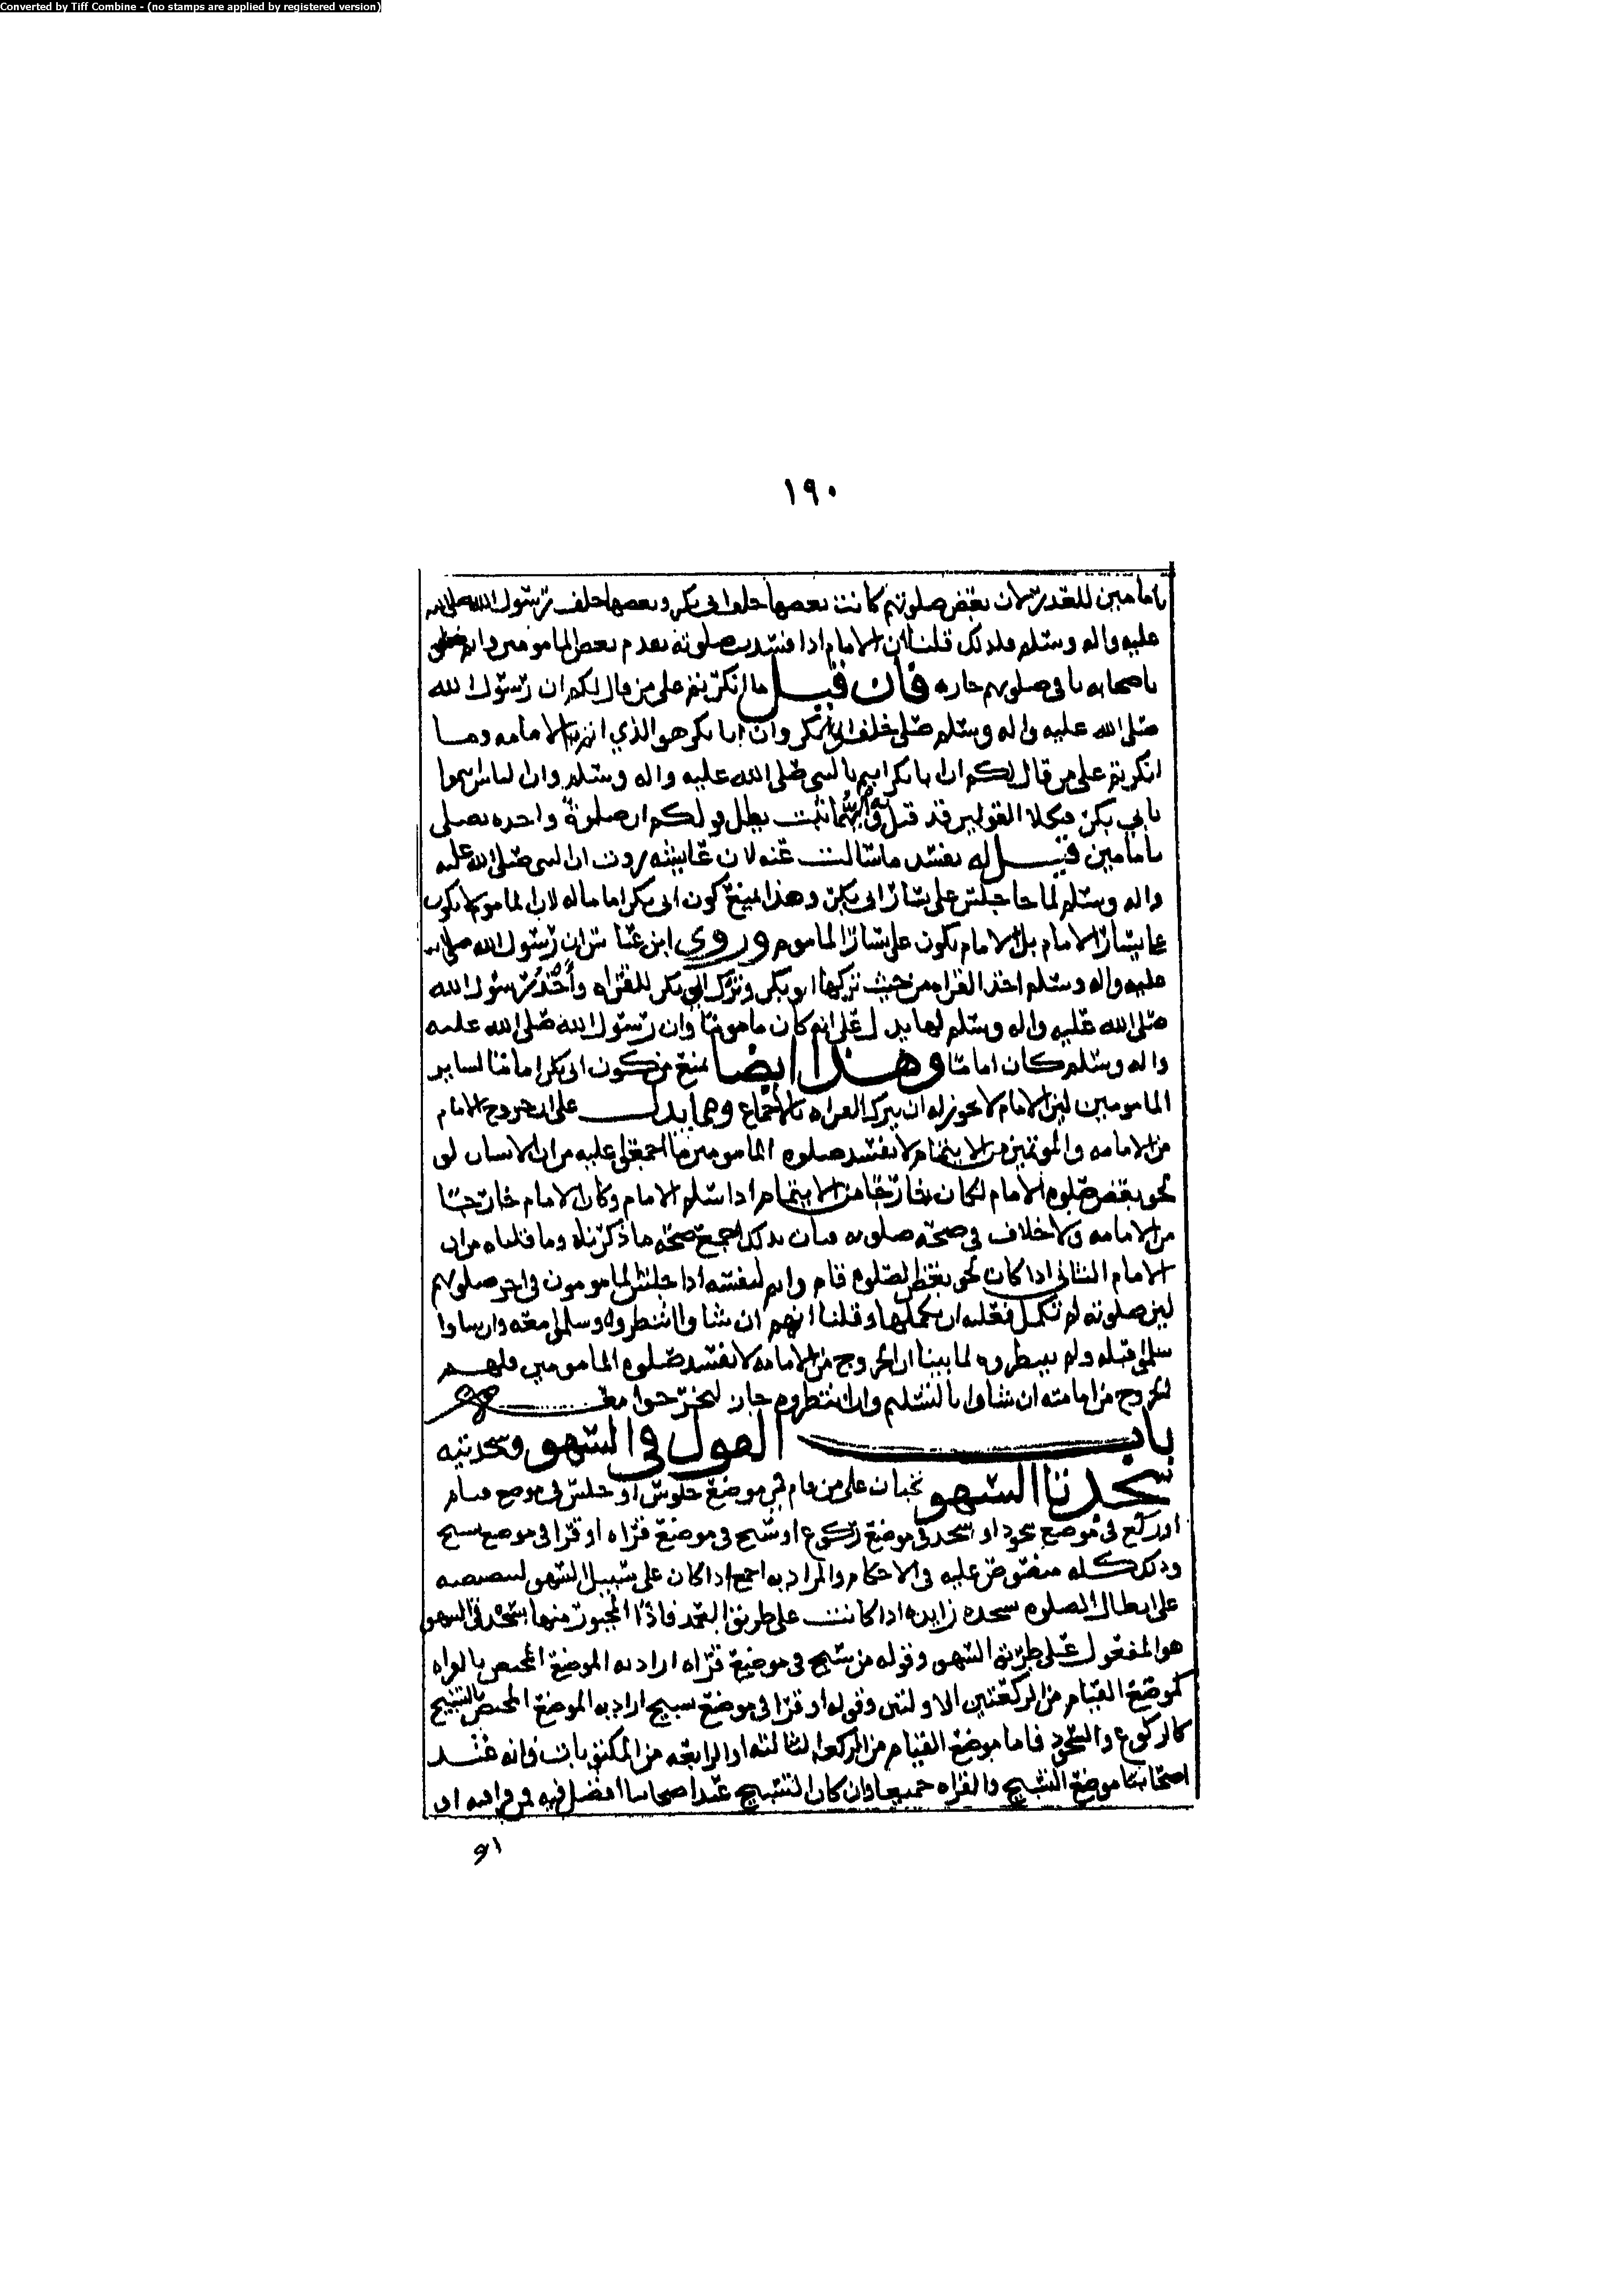 Converted by Tiff Combine - (no stamps are applied by registered version)
١٩٠
بامامين للعذر لان بعض صلوتهم كانت بعضها خلف ابي بكر وبعضها خلف رسول الله صلى الله
عليه واله وسلم فلذلك قلنا ان الامام اذا فسدت صلوته تقدم بعض المامومين واتم
باصحابه باقي صلوتهم جازه فان قيل ما انكرتم على من قال لكم ان رسول الله
صلى الله عليه واله وسلم صلى خلف ابي بكر وان ابا بكر هو الذي الامامه وما
انكرتم على من قال لكم ان ابا بكر ايتم بالنبي صلى الله عليه واله وسلم وان الناس ايتموا
بابي بكر فكلا القولين قد قيل ثبت بطل قولكم ان صلوة واحده تصلى
بامامين قيل له يفسد ما سالت عنه لان عايشه روت ان النبي صلى الله عليه
واله وسلم لما جا جلس على يسار ابي بكر وهذا يمنع كون ابي بكر اماما له لان الماموم لا يكون
على يسار الامام بل الامام يكون على يسار الماموم وروى ابن عباس ان رسول الله صلى الله
عليه واله وسلم اخذ القراه من حيث تركها ابو بكر وترك ابي بكر للقراه واخذ رسول الله
صلى الله عليه واله وسلم لها يدل على انه كان ماموما وان رسول الله صلى الله عليه
واله وسلم كان اماما وهذا ايضا يمنع من كون ابي بكر اماما لساير
المامومين لان الامام لا يجوز له ان يترك القراه بالاجماع ومما يدل على ان خروج الامام
من الامامه والموتمين من الايتمام لا تفسد صلوه المامومين ما اجمعوا عليه من ان الانسان لو
لحق بعض صلوه الامام لكان خارجا من الايتمام اذا سلم الامام وكان الامام خارجا
من الامامه ولا خلاف في صحة صلوته فبان بذلك اجمع صحة ما ذكرناه وما قلناه من ان
الامام الثاني اذا كان لحق بعض الصلوه قام واتم لنفسه اذا جلس المامومون في اخر صلوتهم
لان صلوته لم تكمل فعليه ان يكملها وقلنا انهم ان شاوا انتظروه وسلموا معه وان شاوا
سلموا قبله ولم ينتظروه لما بينا ان الخروج من الامامه لا تفسد صلوه المامومين فلهم
الخروج من امامته ان شاوا بالتسليم وان انتظروه جاز ليخرجوا معه
باب القول في السهو وسجدتيه
سجدتا السهو تجبان على من قام في موضع جلوس او جلس في موضع قيام
او ركع في موضع سجود او سجد في موضع ركوع او سبح في موضع قراه او قرا في موضع تسبيح
وذلك كله منصوص عليه في الاحكام والمراد به اجمع اذا كان على سبيل السهو لتنصيصه
على ابطال الصلوه بسجده زايده اذا كانت على طريق العمد فاذا المجبور منها بسجدتي السهو
هو المفعول على طريق السهو وقوله من سبح في موضع قراه اراد به الموضع المختص بالقراه
كموضع القيام من الركعتين الاولتين وقوله او قرا في موضع تسبيح اراد به الموضع المختص بالتسبيح
كالركوع والسجود فاما موضع القيام من الركعه الثالثه او الرابعه من المكتوبات فانه عند
اصحابنا موضع التسبيح والقراه جميعا وان كان التسبيح عند اصحابنا افضل فيه